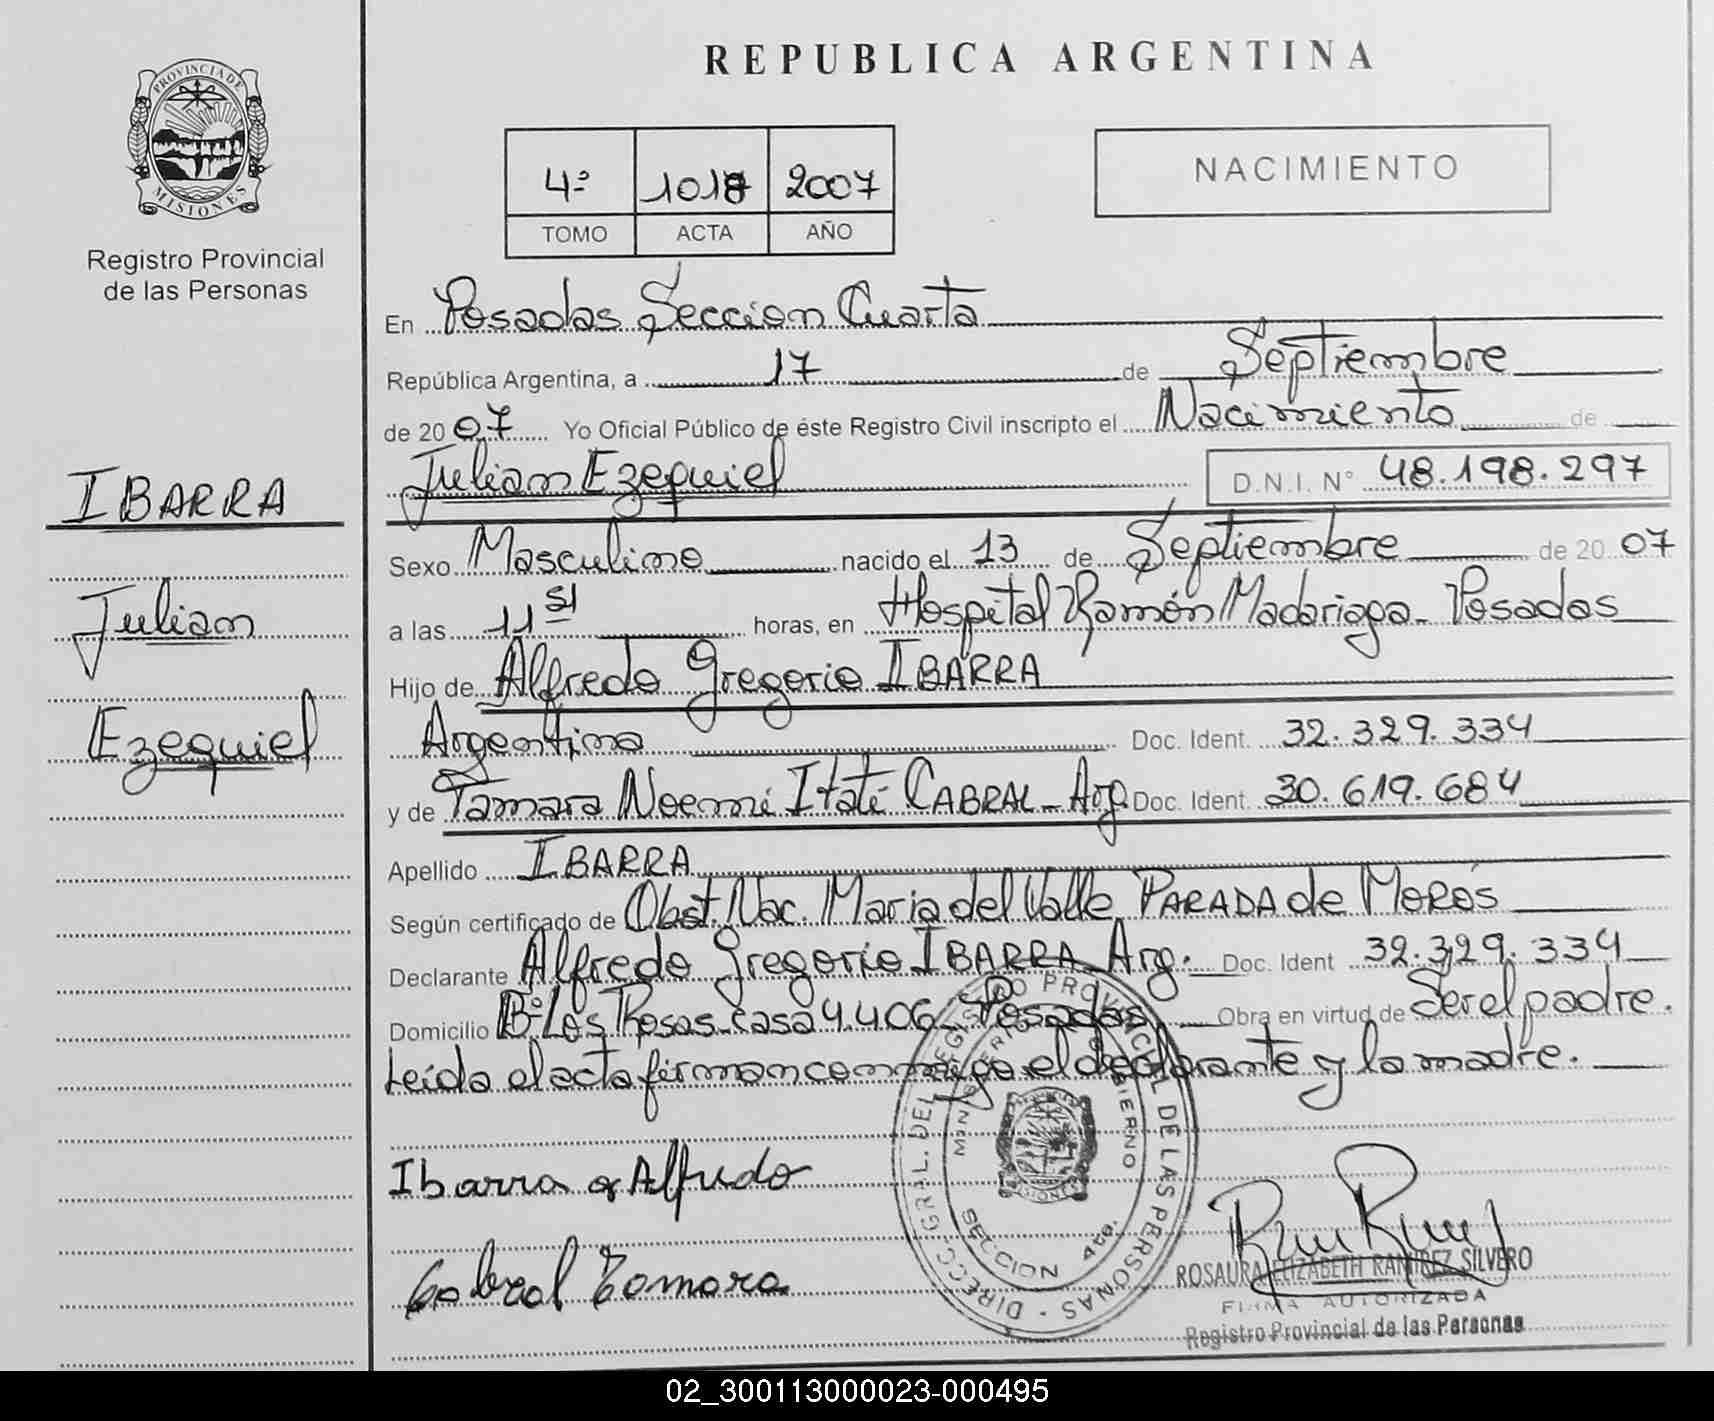 PROVINCIA DE
MISIONES
Registro Provincial
de las Personas
IBARRA
Julian
Ezequiel
REPUBLICA ARGENTINA
4º 1018 2007
TOMO ACTA AÑO
NACIMIENTO
En Posadas Seccion Cuarta
República Argentina, a 17 de Septiembre
de 2007 Yo Oficial Público de éste Registro Civil inscripto el Nacimiento de
Julian Ezequiel D.N.I. Nº 48.198.297
Sexo Masculino nacido el 13 de Septiembre de 2007
a las 11 51 horas, en Hospital Ramón Madariaga - Posadas
Hijo de Alfredo Gregorio IBARRA
Argentino Doc. Ident. 32.329.334
y de Tamara Noemi Itatí CABRAL - Arg. Doc. Ident. 30.619.684
Apellido IBARRA
Según certificado de Obst. Nac. Maria del Valle PARADA de MOROS
Declarante Alfredo Gregorio IBARRA Arg. Doc. Ident 32.329.334
Domicilio Bº Los Rosas casa 4.406 - Posadas Obra en virtud de Ser el padre.
Leída el acta firman conmigo el declarante y la madre.
Ibarra Alfredo
Cabral Tamara
DIRECC. GRAL. DEL REGISTRO PROVINCIAL DE LAS PERSONAS
MINISTERIO DE GOBIERNO
SECCION 4ta.
MISIONES
ROSAURA ELIZABETH RAMIREZ SILVERO
FIRMA AUTORIZADA
Registro Provincial de las Personas
02_300113000023-000495